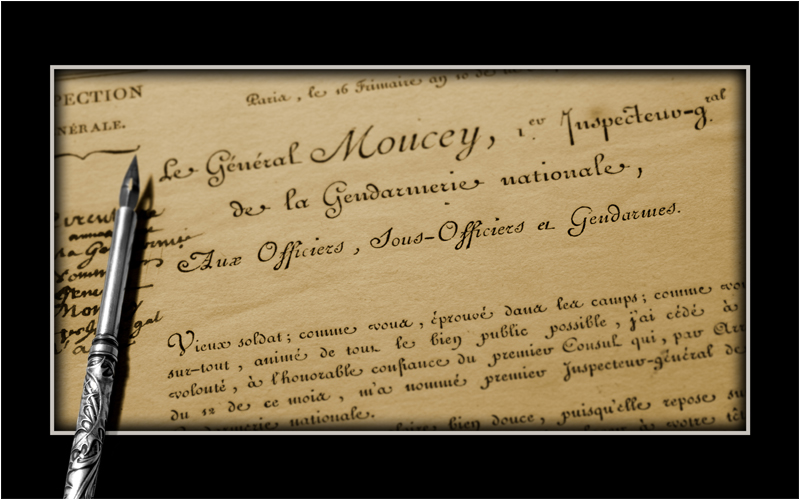 PECTION
NÉRALE.
Paris, le 16 Frimaire an 10 de
Le Général Moncey, 1.er Inspecteur-g.ral
de la Gendarmerie nationale,
Aux Officiers, Sous-Officiers et Gendarmes.
Vieux soldat; comme vous, éprouvé dans les camps; comme vou
sur-tout, animé de tout le bien public possible, j'ai cédé à
volonté, à l'honorable confiance du premier Consul qui, par Arr
du 12 de ce mois, m'a nommé premier Inspecteur-général de
darmerie nationale.
bien douce, puisqu'elle repose su
à votre tê